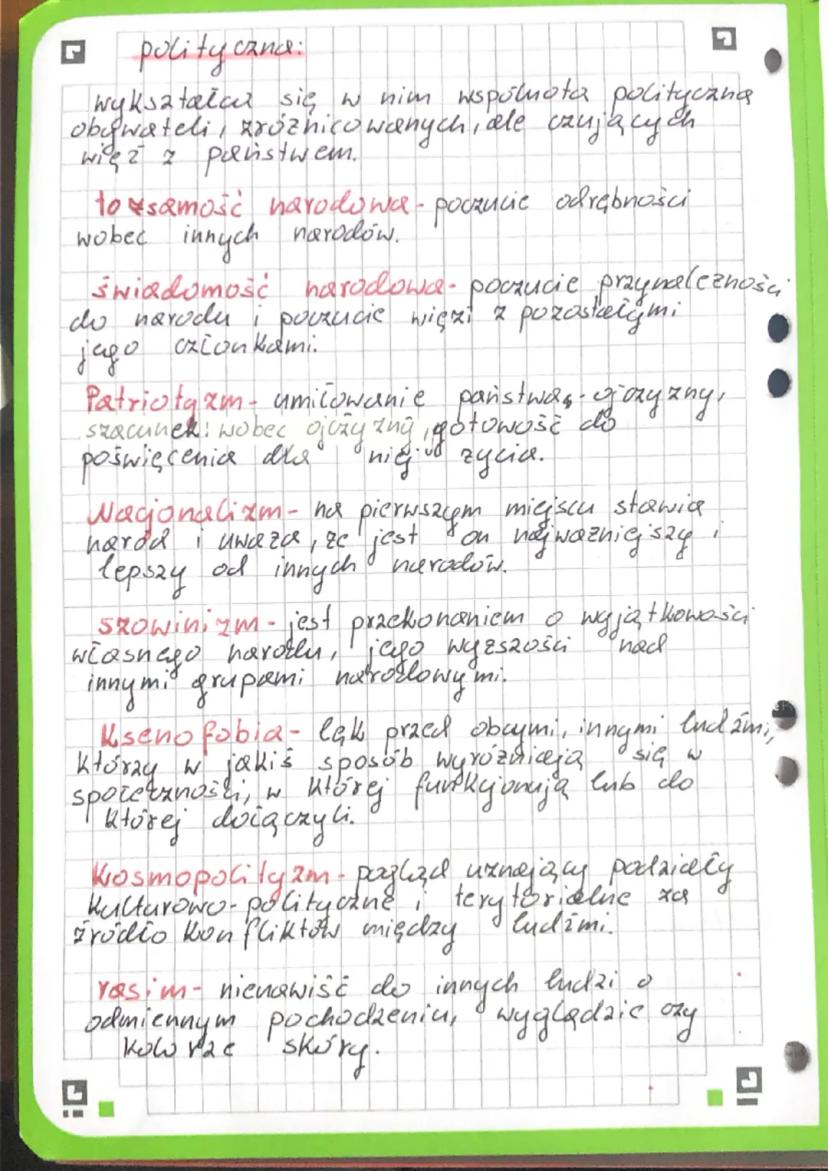 polityczna:
wykształca się w nim wspólnota polityczna
obywateli, zróżnicowanych, ale czujących
więź z państwem.
tożsamość narodowa - poczucie odrębności
wobec innych narodów.
świadomość narodowa - poczucie przynależności
do narodu i poczucie więzi z pozostałymi
jego członkami.
Patriotyzm - umiłowanie państwa, ojczyzny,
szacunek: wobec ojczyzny, gotowość do
poświęcenia dla niej życia.
Nacjonalizm - na pierwszym miejscu stawia
naród i uważa, że jest on najważniejszy i
lepszy od innych narodów.
szowinizm - jest przekonaniem o wyjątkowości
własnego narodu, jego wyższości nad
innymi grupami narodowymi.
Ksenofobia - lęk przed obcymi, innymi ludźmi,
którzy w jakiś sposób wyróżniają się w
społeczności, w której funkcjonują lub do
której dołączyli.
Kosmopolityzm - pogląd uznający podziały
kulturowo-polityczne i terytorialne za
źródło konfliktów między ludźmi.
rasim - nienawiść do innych ludzi o
odmiennym pochodzeniu, wyglądzie czy
kolorze skóry.